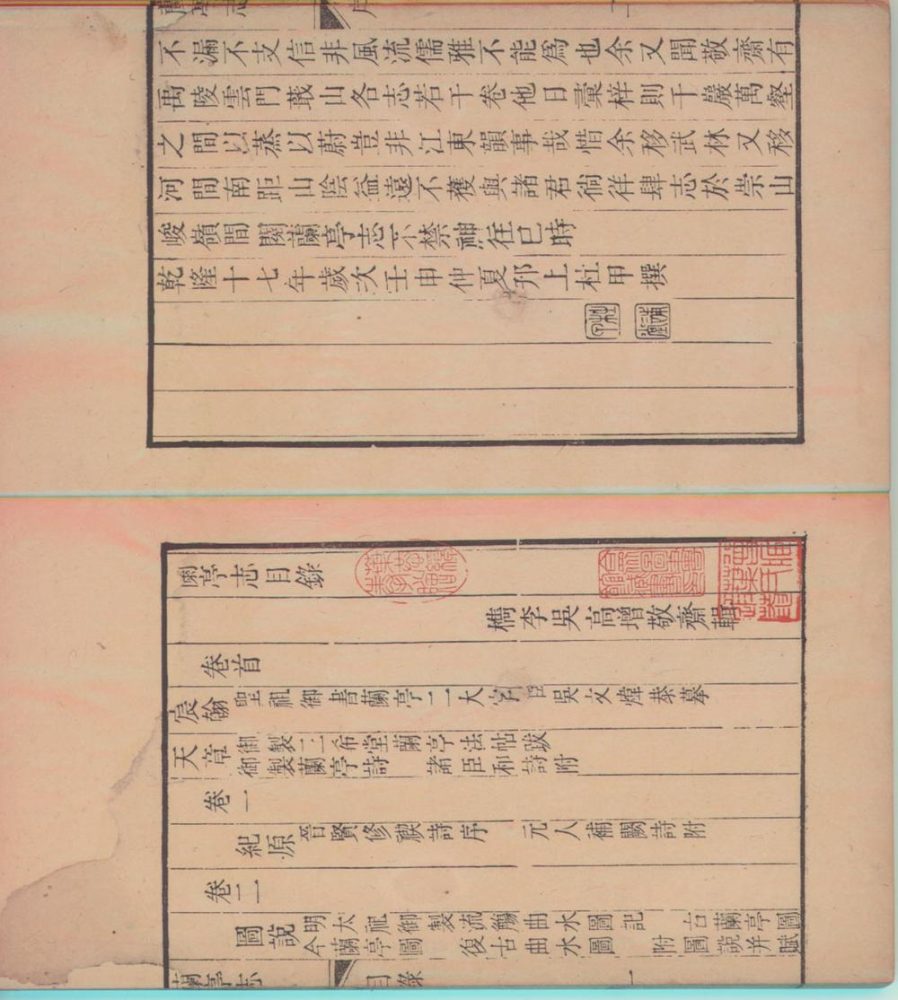 不漏不支信非風流儒雅不能爲也余又聞敬齋有
禹陵雲門蕺山各志若干卷他日彙梓則千巖萬壑
之間以蒸以蔚豈非江東韻事哉惜余移武林又移
河間南距山陰益遠不獲與諸君徜徉肆志於崇山
峻嶺間閱蘭亭志不禁神往已時
乾隆十七年歲次壬申仲夏邗上杜甲撰
蘭亭志目錄
檇李吳高增敬齋輯
卷首
宸翰 聖祖御書蘭亭二大字 臣吳文煒恭摹
天章 御製三希堂蘭亭法帖跋
御製蘭亭詩 諸臣和詩附
卷一
紀原 晉賢修禊詩序 元人補闕詩附
卷二
圖說 明太祖御製流觴曲水圖記 古蘭亭圖
今蘭亭圖 復古曲水圖 附圖說并賦
蘭亭志 目錄 一